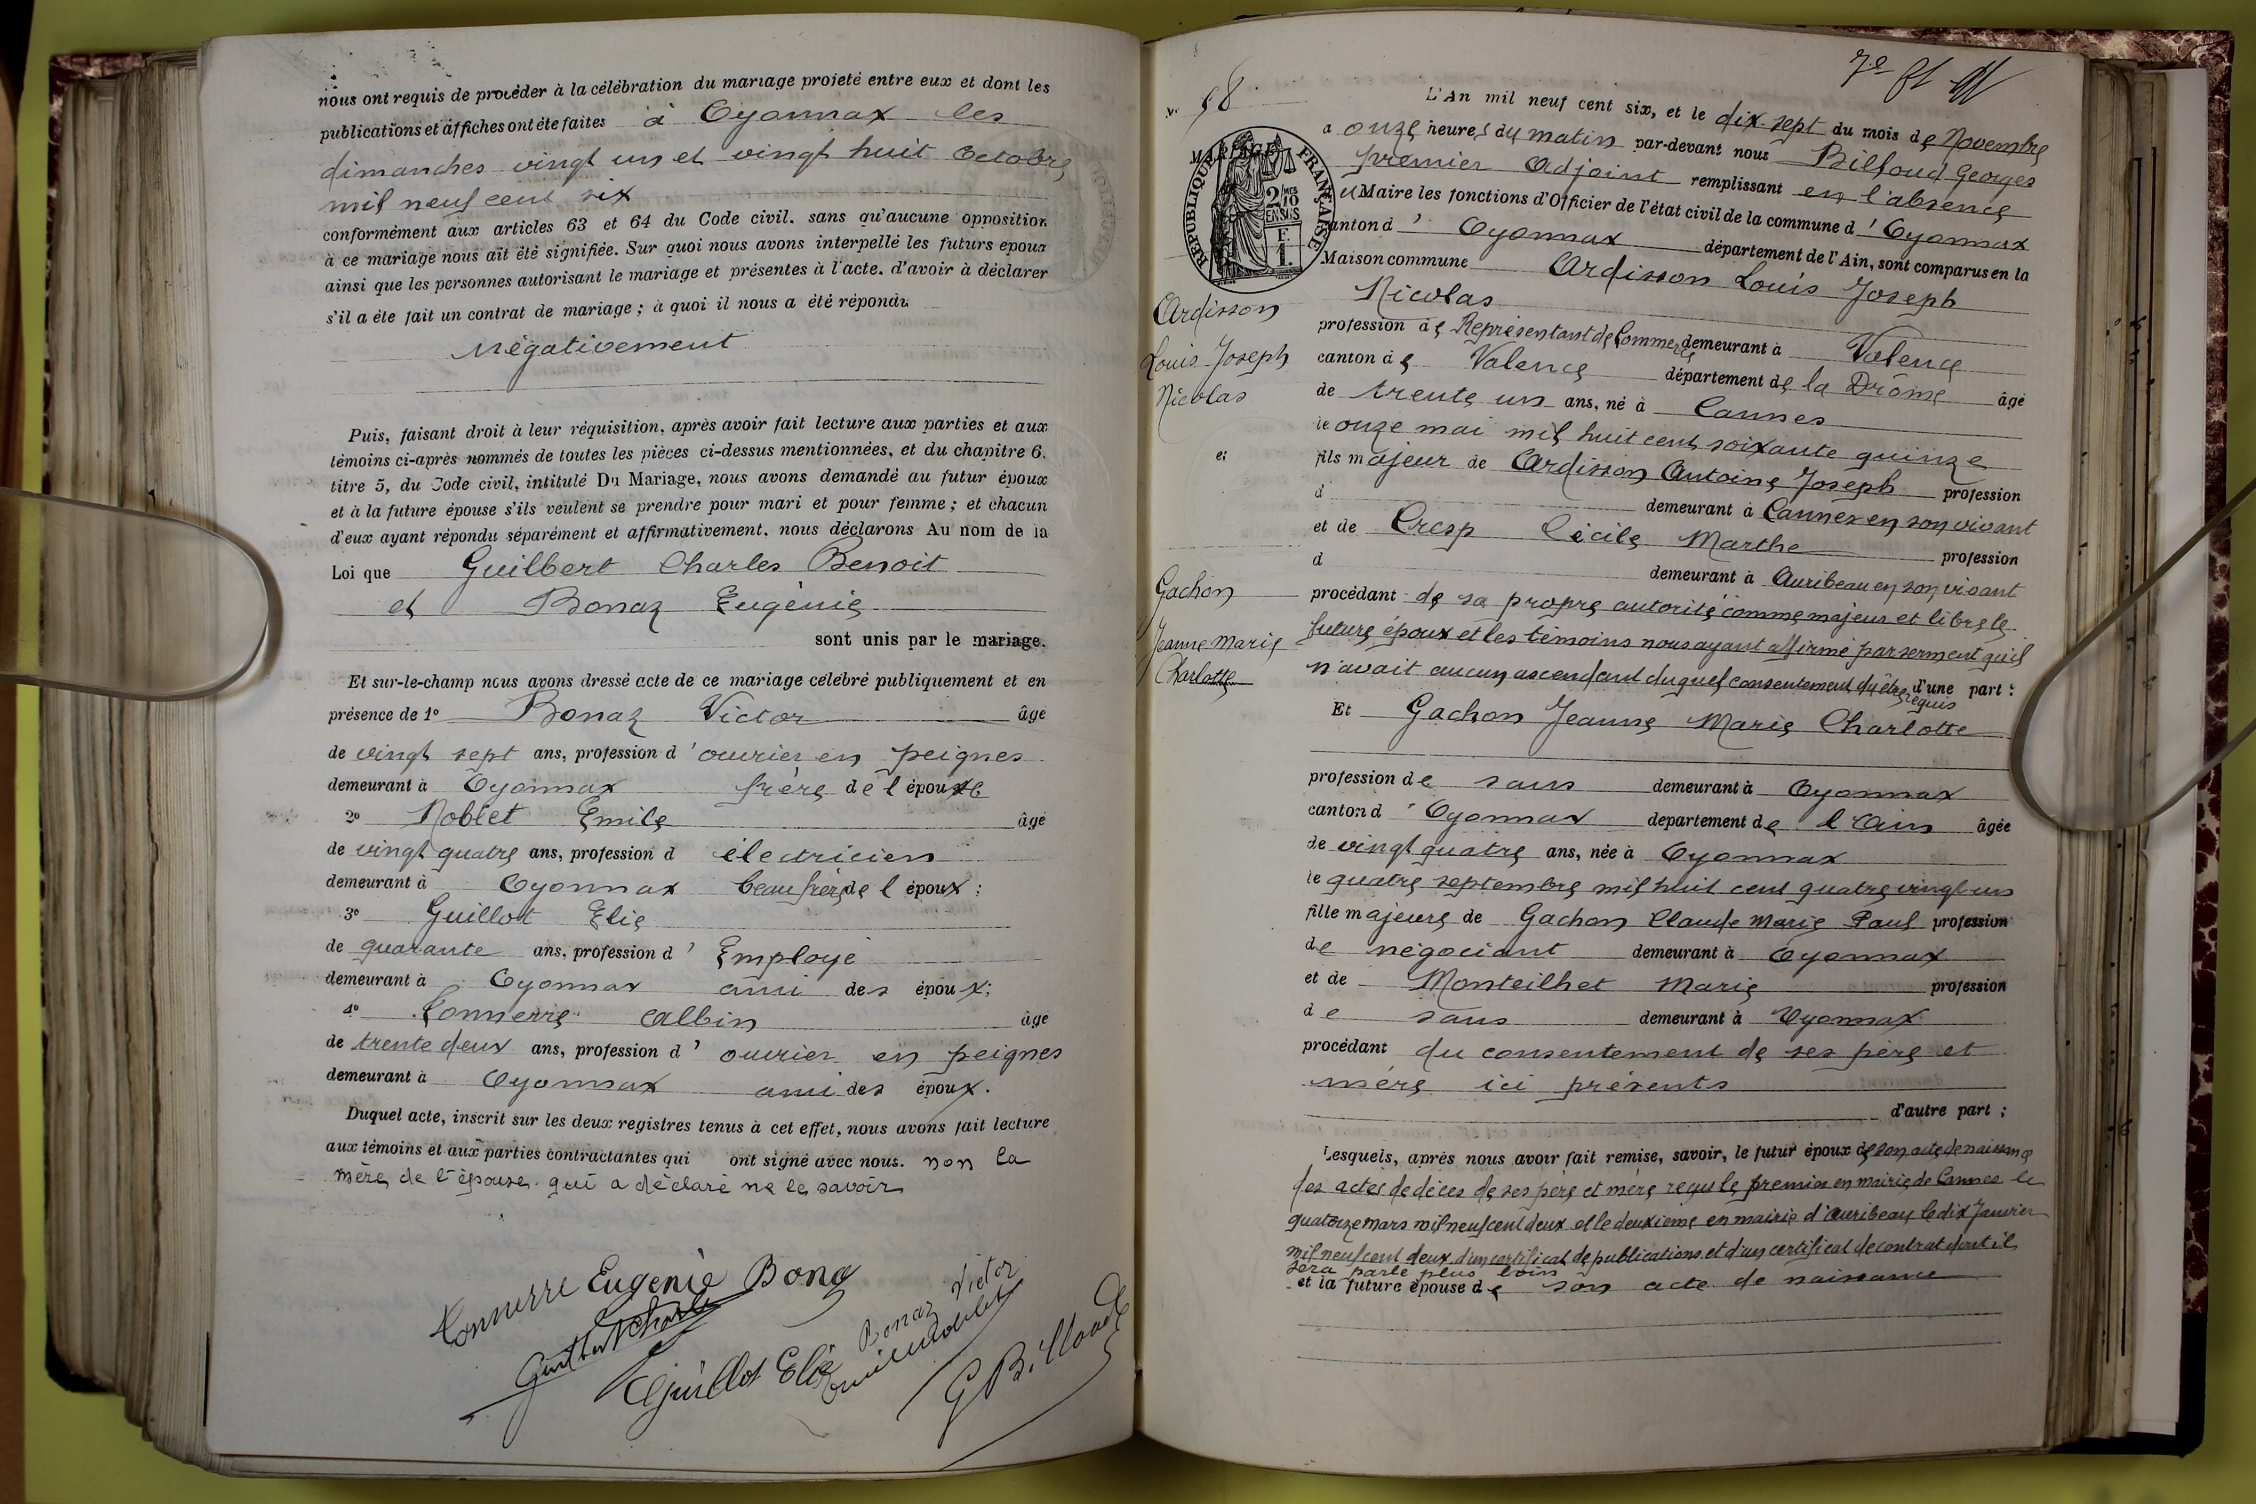 nous ont requis de procéder à la célébration du mariage projeté entre eux et dont les
publications et affiches ont été faites à Oyonnax les
dimanches vingt un et vingt huit Octobre
mil neuf cent six
conformément aux articles 63 et 64 du Code civil. sans qu'aucune opposition
à ce mariage nous ait été signifiée. Sur quoi nous avons interpellé les futurs époux
ainsi que les personnes autorisant le mariage et présentes à l'acte. d'avoir à déclarer
s'il a été fait un contrat de mariage ; à quoi il nous a été répondu
Négativement
Puis, faisant droit à leur réquisition, après avoir fait lecture aux parties et aux
témoins ci-après nommés de toutes les pièces ci-dessus mentionnées, et du chapitre 6.
titre 5, du Code civil, intitulé Du Mariage, nous avons demandé au futur époux
et à la future épouse s'ils veulent se prendre pour mari et pour femme ; et chacun
d'eux ayant répondu séparément et affirmativement. nous déclarons Au nom de la
Loi que Guilbert Charles Benoit
et Bonaz Eugénie
sont unis par le mariage.
Et sur-le-champ nous avons dressé acte de ce mariage célébré publiquement et en
présence de 1° Bonaz Victor âgé
de vingt sept ans, profession d'ouvrier en peignes
demeurant à Oyonnax frère de l'épouse
2° Noblet Emile âgé
de vingt quatre ans, profession d électricien
demeurant à Oyonnax beau frère de l époux ;
3° Guillot Elie
de quarante ans, profession d' Employé
demeurant à Oyonnax ami des époux ;
4° Tonnerre Albin âgé
de trente deux ans, profession d' ouvrier en peignes
demeurant à Oyonnax ami des époux.
Duquel acte, inscrit sur les deux registres tenus à cet effet, nous avons fait lecture
aux témoins et aux parties contractantes qui ont signé avec nous. non la
mère de l'épouse qui a déclaré ne le savoir
Tonnerre Eugénie Bonaz
Guilbert Charles
Bonaz Victor
Guillot Elie
Emile Noblet
G Billoud
N° 98
REPUBLIQUE FRANÇAISE
2/10 EN SUS
F. 1.
L'An mil neuf cent six, et le dix sept du mois de Novembre
a onze heures du matin par-devant nous Billoud Georges
premier Adjoint remplissant en l'absence
du Maire les fonctions d'Officier de l'état civil de la commune d'Oyonnax
canton d' Oyonnax département de l'Ain, sont comparus en la
Maison commune Ardisson Louis Joseph
Nicolas
Ardisson
Louis Joseph
Nicolas
et
Gachon
Jeanne Marie
Charlotte
profession de Représentant de Commerce demeurant à Valence
canton de Valence département de la Drôme âgé
de trente un ans, né à Cannes
le onze mai mil huit cent soixante quinze
fils majeur de Ardisson Antoine Joseph profession
d demeurant à Cannes en son vivant
et de Cresp Cécile Marthe profession
d demeurant à Auribeau en son vivant
procédant de sa propre autorité comme majeur et libre le
future époux et les témoins nous ayant affirmé par serment qu'il
n'avait aucun ascendant duquel consentement dû être requis d'une part :
Et Gachon Jeanne Marie Charlotte
profession de sans demeurant à Oyonnax
canton d' Oyonnax département de l'Ain âgée
de vingt quatre ans, née à Oyonnax
le quatre septembre mil huit cent quatre vingt un
fille majeure de Gachon Claude Marie Paul profession
de négociant demeurant à Oyonnax
et de Monteilhet Marie profession
de sans demeurant à Oyonnax
procédant du consentement de ses père et
mère ici présents
d'autre part ;
Lesquels, après nous avoir fait remise, savoir, le futur époux de son acte de naissance
des actes de décès de ses père et mère reçu le premier en mairie de Cannes le
quatorze mars mil neuf cent deux et le deuxième en mairie d'Auribeau le dix Janvier
mil neuf cent deux, d'un certificat de publications et d'un certificat de contrat dont il
sera parlé plus loin
et la future épouse de son acte de naissance